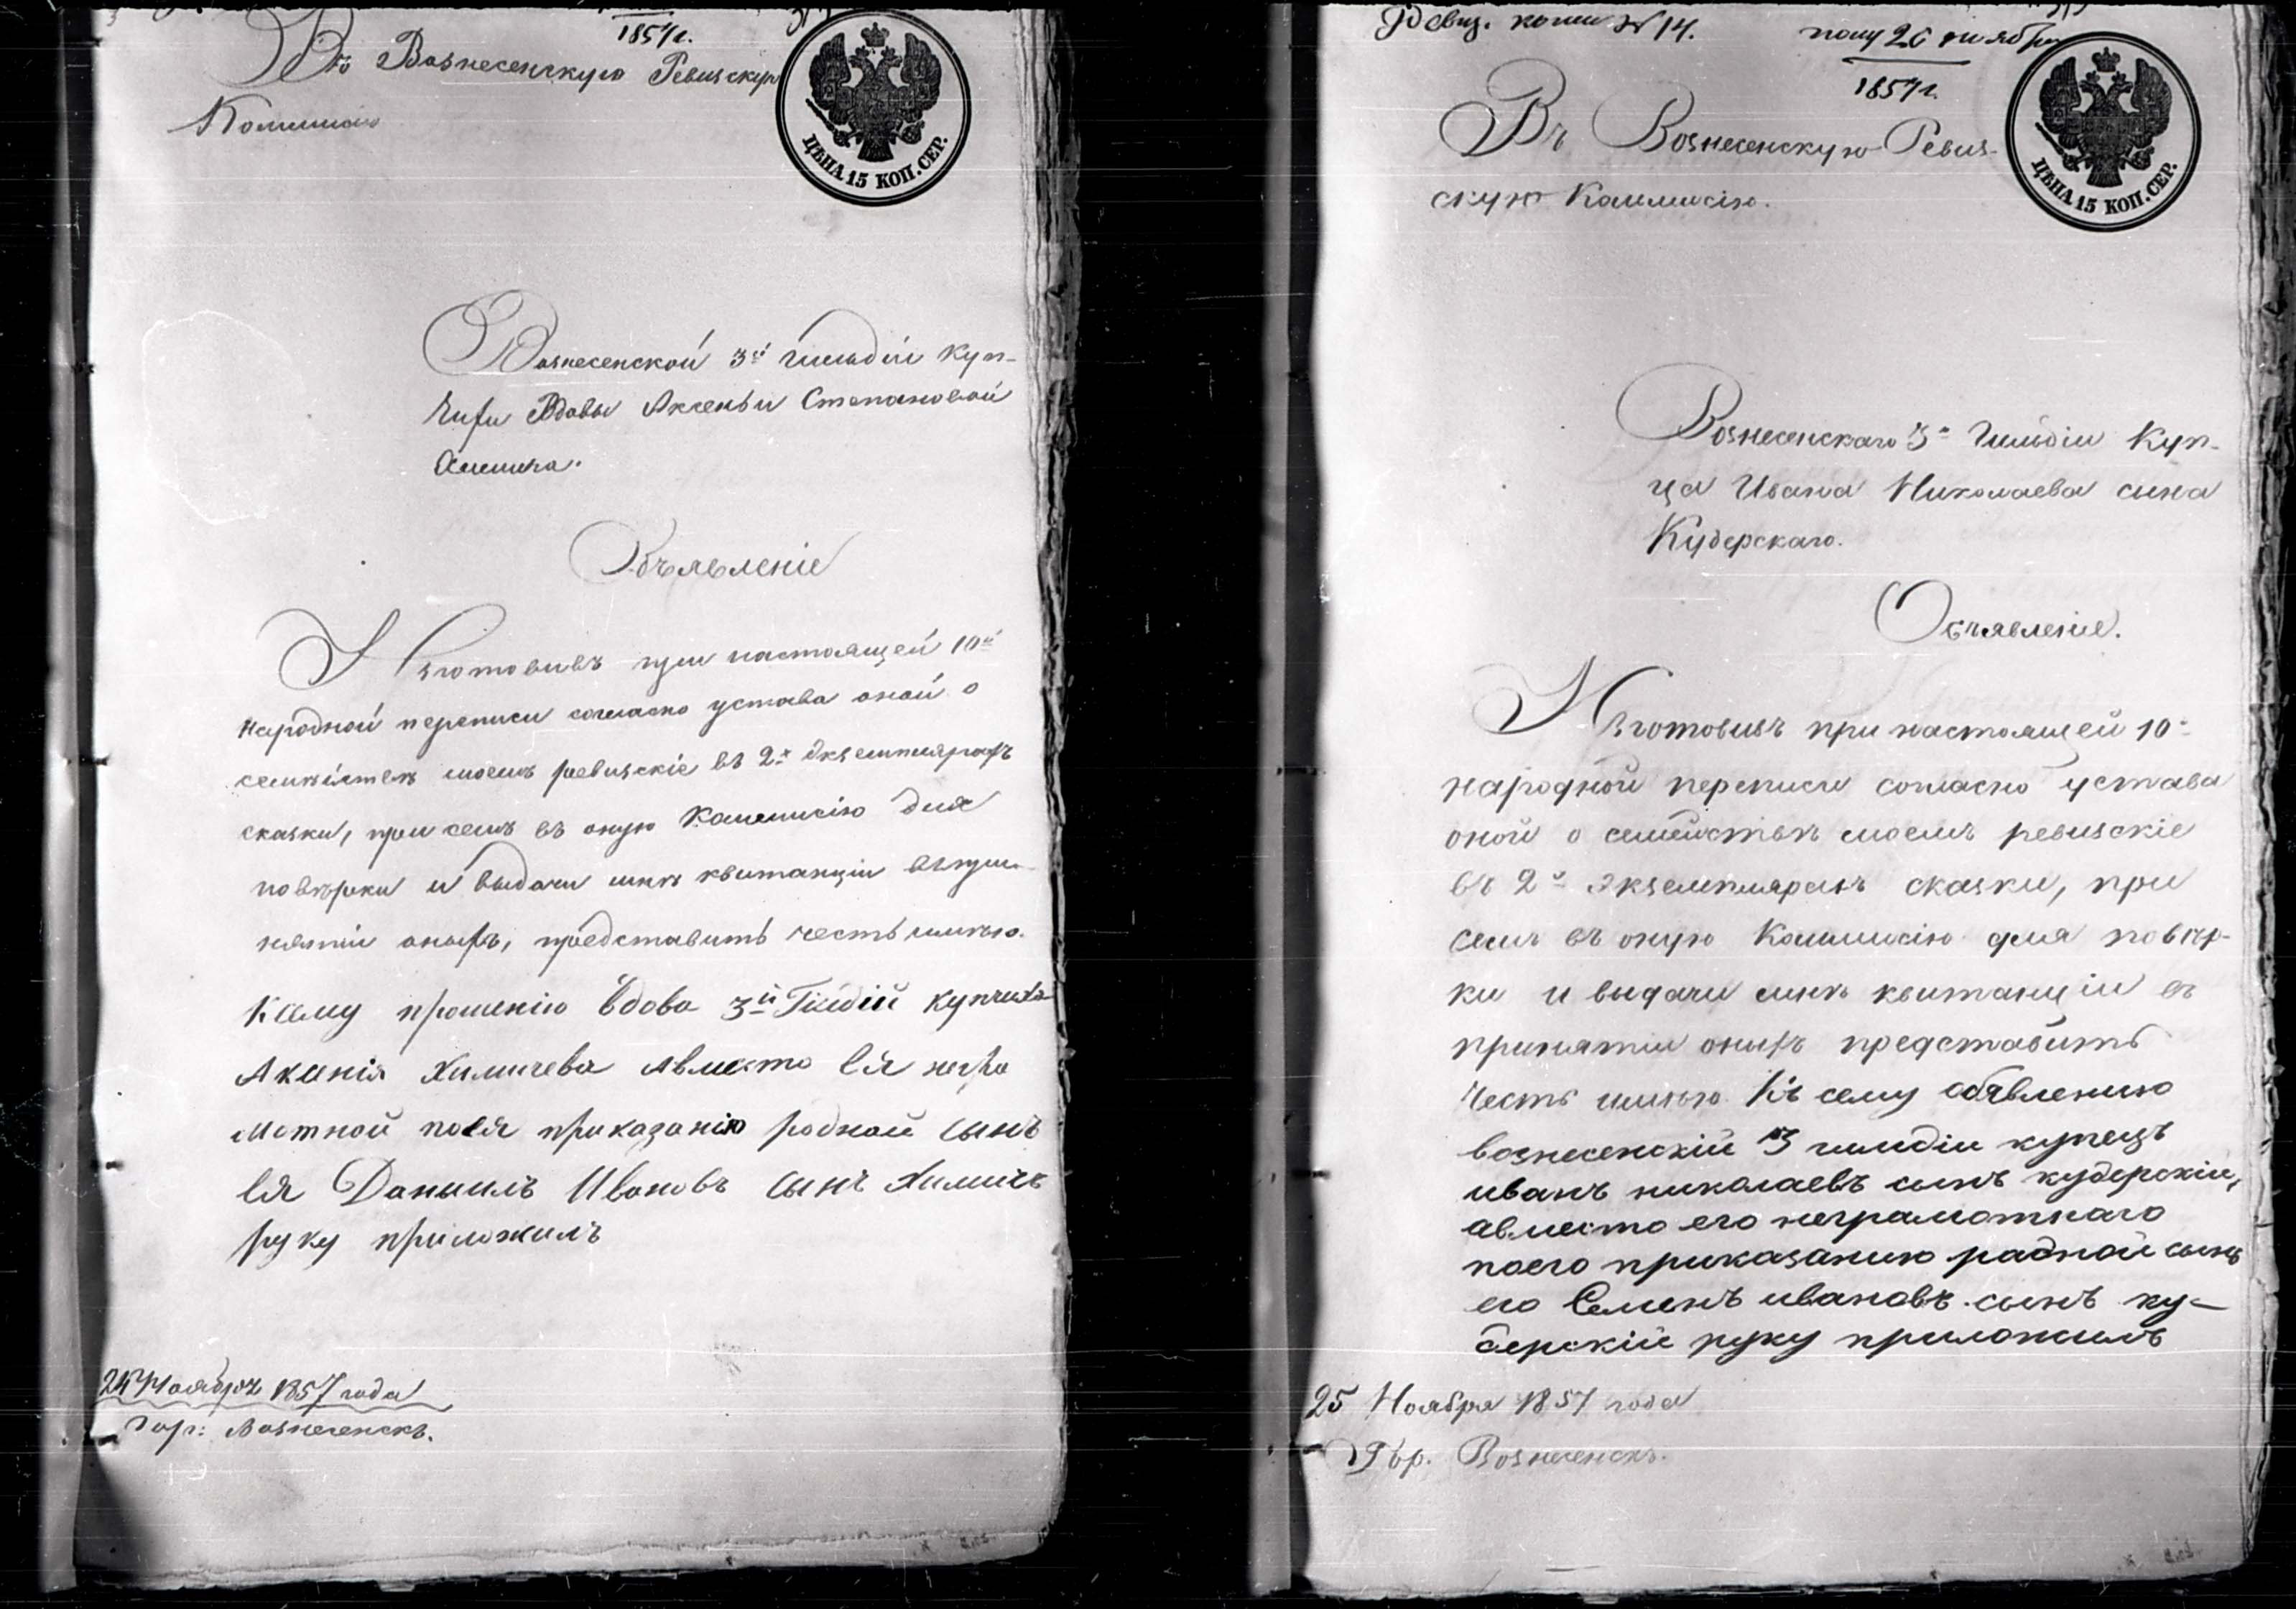 1857 г.
Въ Вознесенскую Ревизскую
Коммисію
ЦѢНА 15 КОП. СЕР.
Вознесенской 3й Гильдіи Куп-
чихи Вдовы Аксеньи Степановой
Объявленіе
Изготовивъ при настоящей 10й
народной переписи согласно устава оной о
семействѣ моемъ ревизскіе въ 2х экземплярахъ
сказки, при семъ въ оную Коммисію для
повѣрки и выдачи мнѣ квитанціи въ при-
нятіи оныхъ, представить честь имѣю.
Ксему прошенію вдова 3й Гилдіи купчиха
Аксинія Химичева авместо ея негра
мотной поея приказанію родной сынъ
ея Даниилъ Ивановъ сынъ Химичъ
руку приложилъ
24 Ноября 1857 года
Гор: Вознесенскъ.
Ревиз. комм № 14.
полу 26 ноября
1857 г.
Въ Вознесенскую Ревиз-
скую Коммисію.
ЦѢНА 15 КОП. СЕР.
Вознесенскаго 3й Гильдіи Куп-
ца Ивана Николаева сына
Кудерскаго.
Объявленіе.
Изготовивъ при настоящей 10й
народной переписи согласно устава
оной о семействѣ моемъ ревизскіе
въ 2х экземплярахъ сказки, при
семъ въ оную Коммисію для повѣр-
ки и выдачи мнѣ квитанціи въ
принятіи оныхъ представить
честь имѣю Къ сему обявлению
вознесенскій 3 гилдіи купецъ
иванъ николаевъ сынъ кудерскій,
авместо его неграмотнаго
поего приказанию радной сынъ
его Семенъ ивановъ сынъ ку-
дерскій руку приложилъ
25 Ноября 1857 года
Гор. Вознесенскъ.